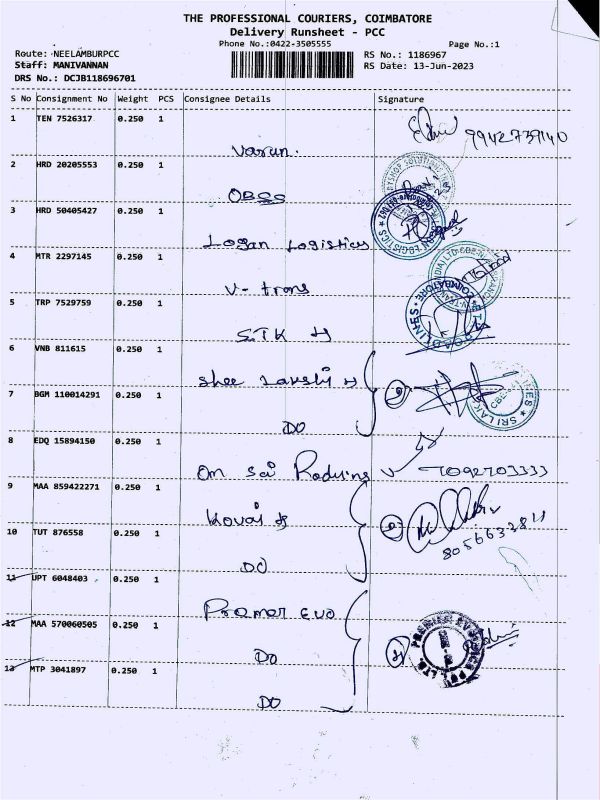 THE PROFESSIONAL COURIERS, COIMBATORE
Delivery Runsheet - PCC
Phone No.:0422-3505555 Page No.:1
Route: NEELAMBURPCC RS No.: 1186967
Staff: MANIVANNAN RS Date: 13-Jun-2023
DRS No.: DCJB118696701
S No Consignment No Weight PCS Consignee Details Signature
1 TEN 7526317 0.250 1 9942739140
Varun.
2 HRD 20205553 0.250 1
OBSS
3 HRD 50405427 0.250 1
Logan Logistics
4 MTR 2297145 0.250 1
V- trans
5 TRP 7529759 0.250 1
STK
6 VNB 811615 0.250 1
Shee
7 BGM 110014291 0.250 1
DO
8 EDQ 15894150 0.250 1
Om Sai 7092703333
9 MAA 859422271 0.250 1
Kovai
10 TUT 876558 0.250 1
DO
11 UPT 6048403 0.250 1
Premer Evo
12 MAA 570060505 0.250 1
DO
13 MTP 3041897 0.250 1
DO